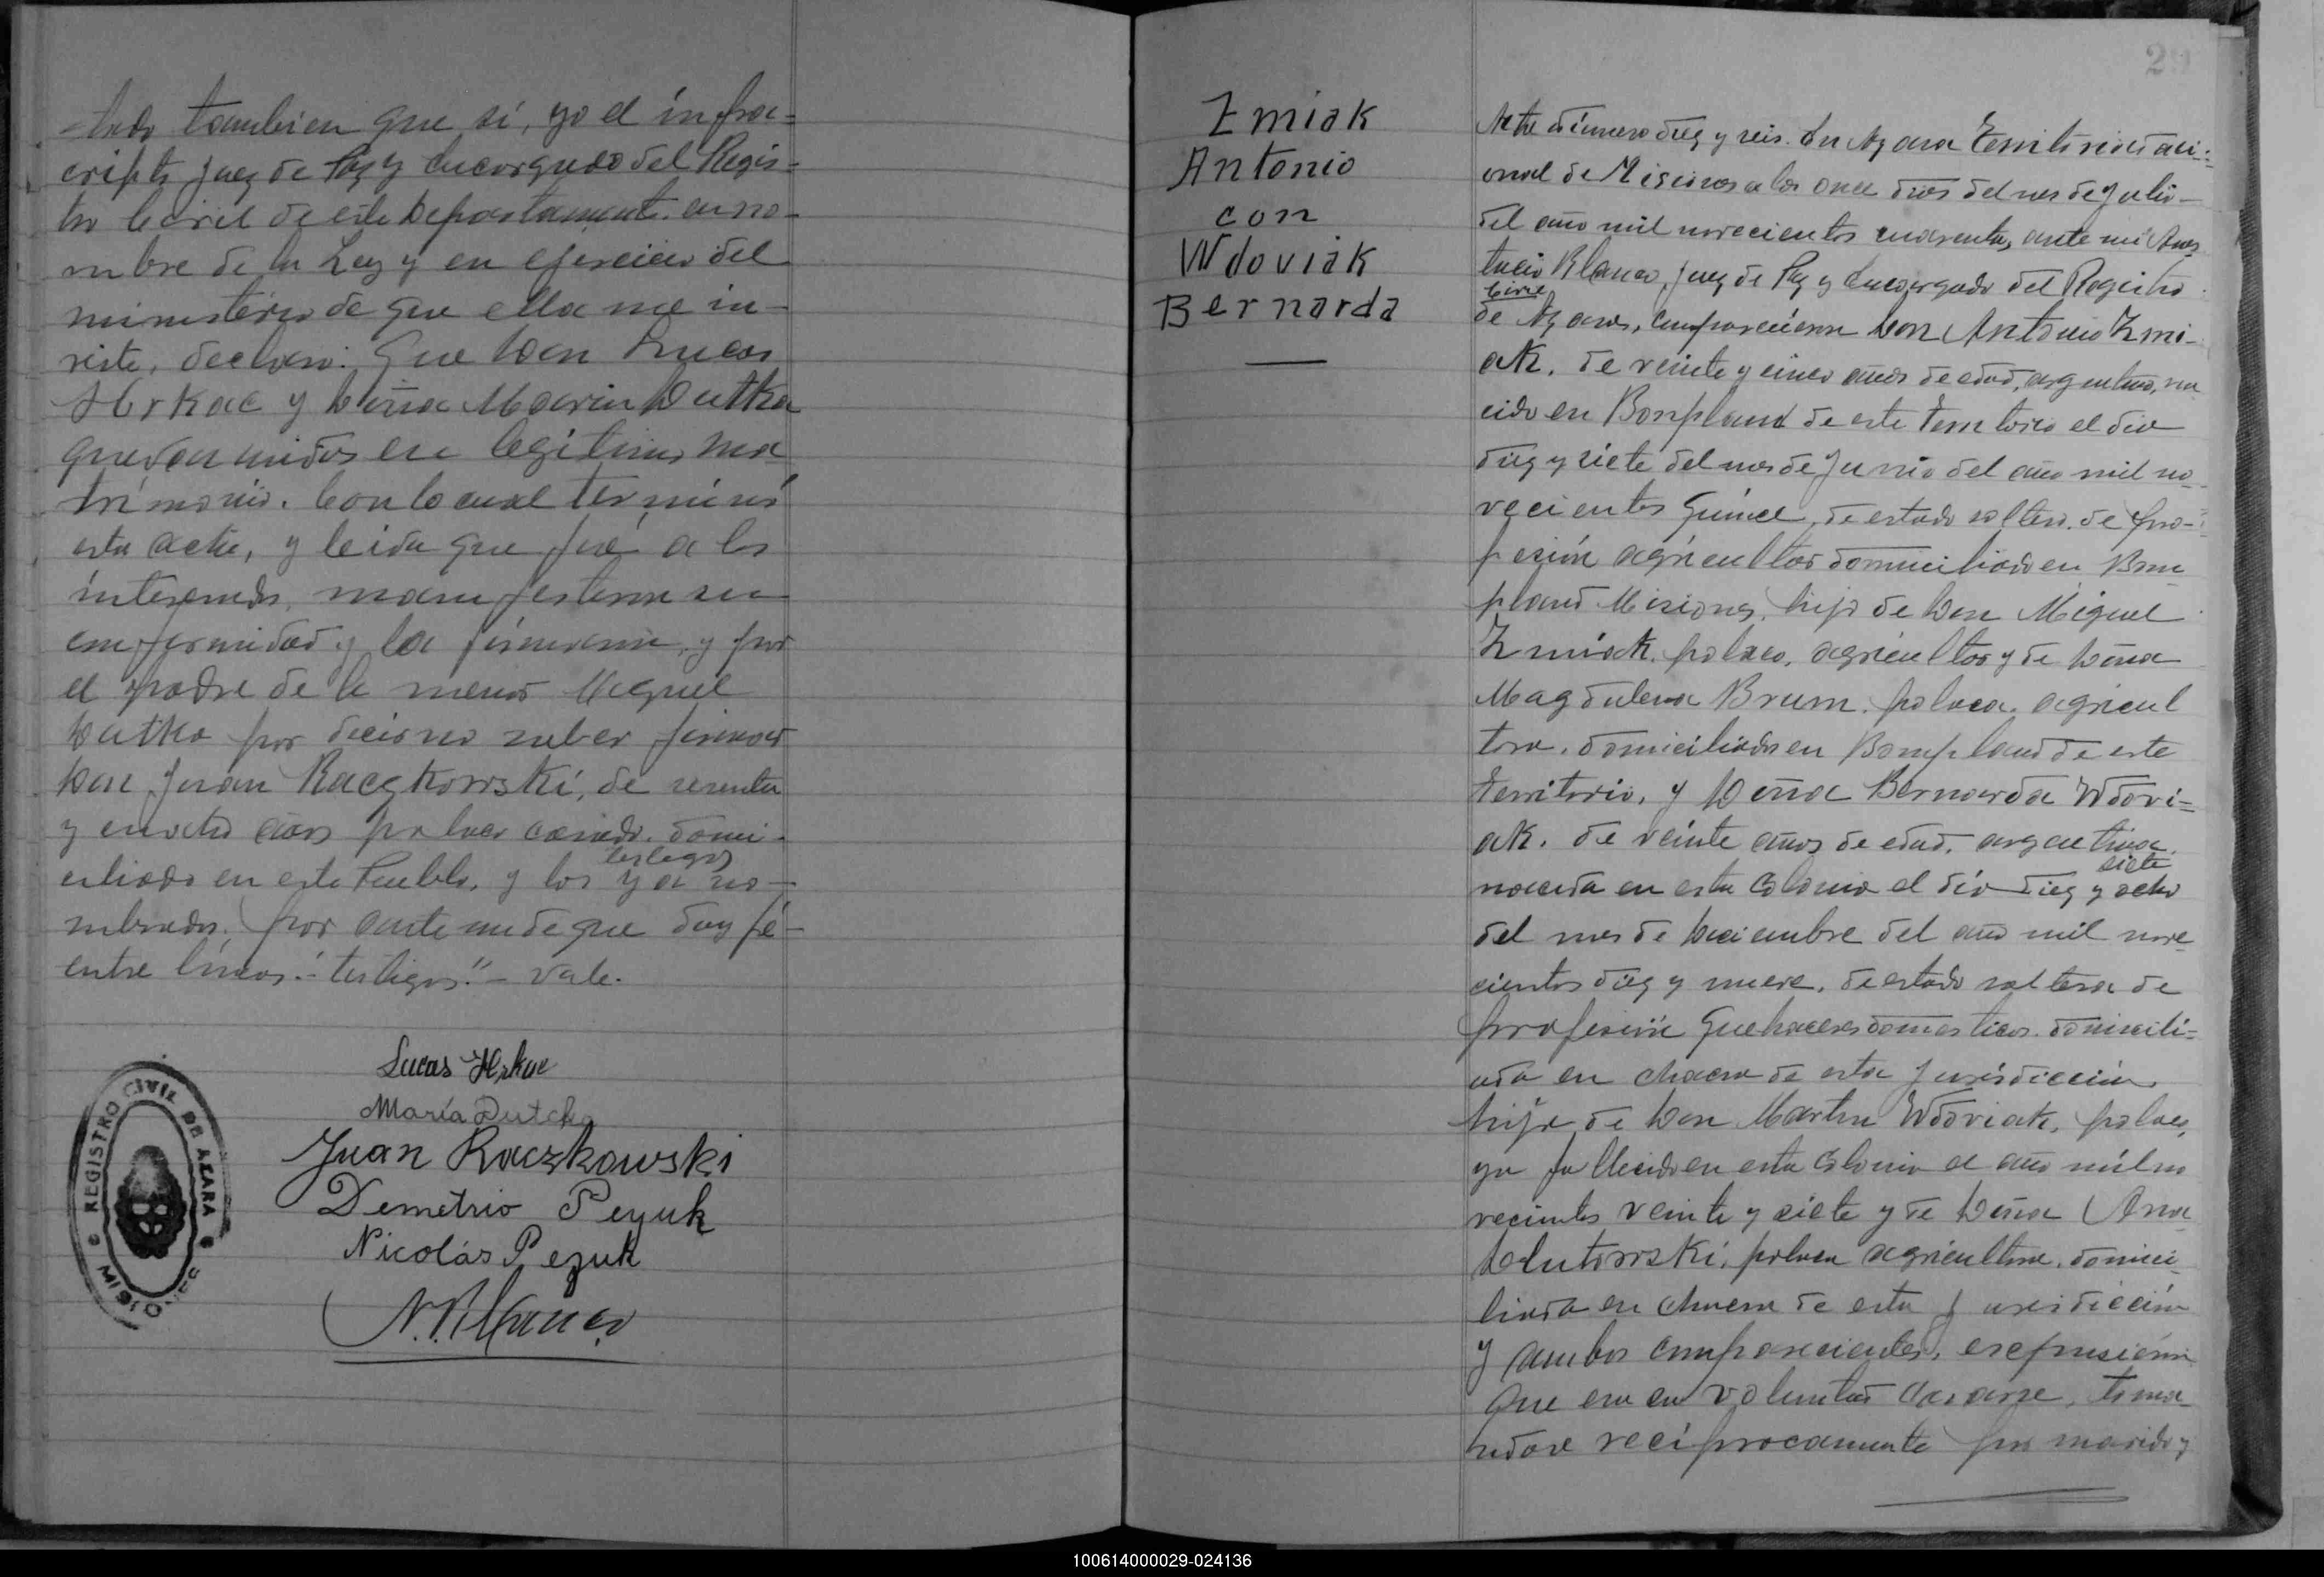 -tado tambien que sí, yo el infras=
cripto Juez de Paz y Encargado del Regis=
tro Civil de este Departamento en no-
mbre de la Ley y en ejercicio del
ministerio de que ella me in-
viste, declaro: Que Don Lucas
Hrkac y Doña Maria Dutka
quedan unidos en legitimo ma
trimonio. Con lo cual terminó
esta acta, y leida que fué a los
interesados, manifestaron su
conformidad y la firmaron, y por
el padre de la menor Miguel
Dutka por decir no saber firmar
Don Juan Raczkowski, de sesenta
y cuatro años polaco casado. domi-
ciliado en este Pueblo, y los testigos ya no-
mbrados, por ante mi de que doy fé-
entre líneas:"testigos"- Vale.
Lucas Hrkac
María Dutcka
Juan Raczkowski
Demetrio Peyuk
Nicolás Pezuk
N. Blanco
REGISTRO CIVIL DE AZARA
MISIONES
29
Zmiak
Antonio
con
Wdoviak
Bernarda
Acta número diez y seis. En Azara Territorio Naci=
onal de Misiones a los once dias del mes de Julio-
del año mil novecientos cuarenta, ante mi
Blanco, Juez de Paz y Encargado del Registro
Civil
de Azara, comparecieron Don Antonio Zmi-
ak. de veinte y cinco años de edad, argentino, na
cido en Bonpland de este Territorio el dia
diez y siete del mes de Junio del año mil no
vecientos quince, de estado soltero. de pro-
fesión agricultor domiciliado en Bon
pland Misiones, hijo de Don Miguel
Zmiak. polaco, agricultor y de Doña
Magdalena Brum. polaca. agricul
tora. domiciliados en Bonpland de este
territorio, y Doña Bernarda Wdovi=
ak. de veinte años de edad. argentina.
siete
nacida en esta Colonia el día diez y ocho
del mes de Diciembre del año mil nove
cientos diez y nueve. de estado soltera de
profesión quehaceres domesticos. domicili=
ada en chacra de esta Jurisdicción.
hija de Don Martin Wdoviak, polaco,
ya fallecido en esta Colonia el año mil no
vecientos veinte y siete y de Doña Ana
Dlutowski, polaca agricultora. domici
liada en chacra de esta Jurisdicción
y ambos comparecientes, expusieron
que era su voluntad casarse, toma
ndose recíprocamente por marido y
100614000029-024136